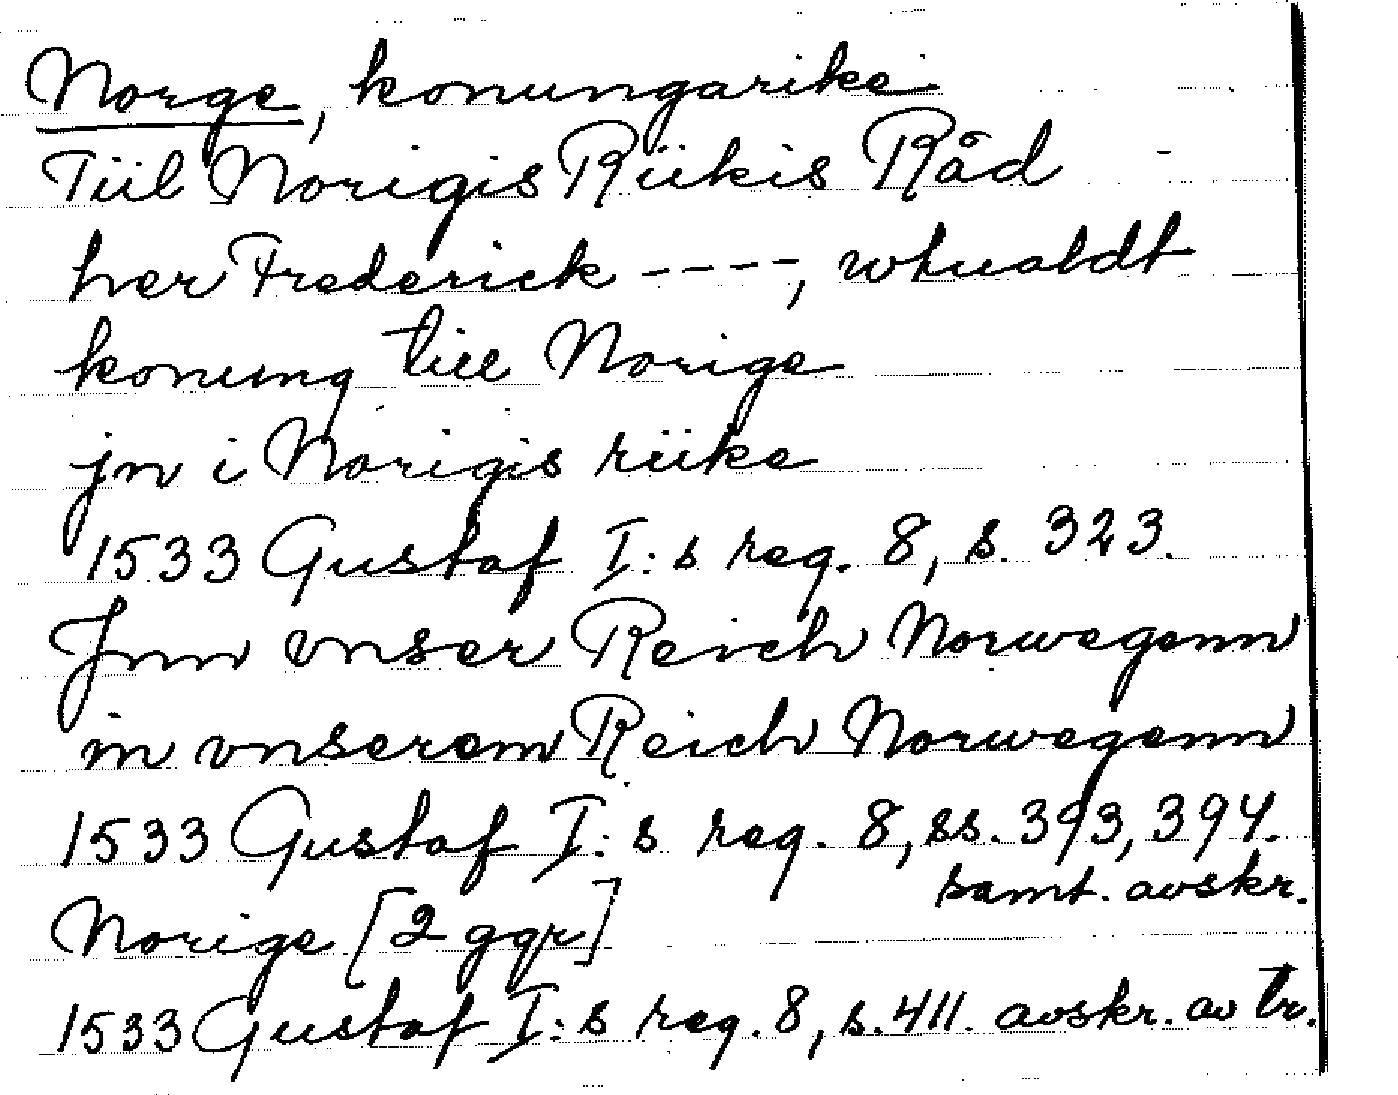 Norge, konungarike
Tiil Norigis Riikis Råd
her Frederick ----, wtualdt
konung till Norige
jn i Norigis riike
1533 Gustaf I:s reg. 8, s. 323.
Jnn vnser Reich Norwegenn
in vnserem Reich Norwegenn
1533 Gustaf I:s reg. 8, ss. 393, 394.
samt. avskr.
Norige [2 ggr]
1533 Gustaf I:s reg. 8, s. 411. avskr. av tr.